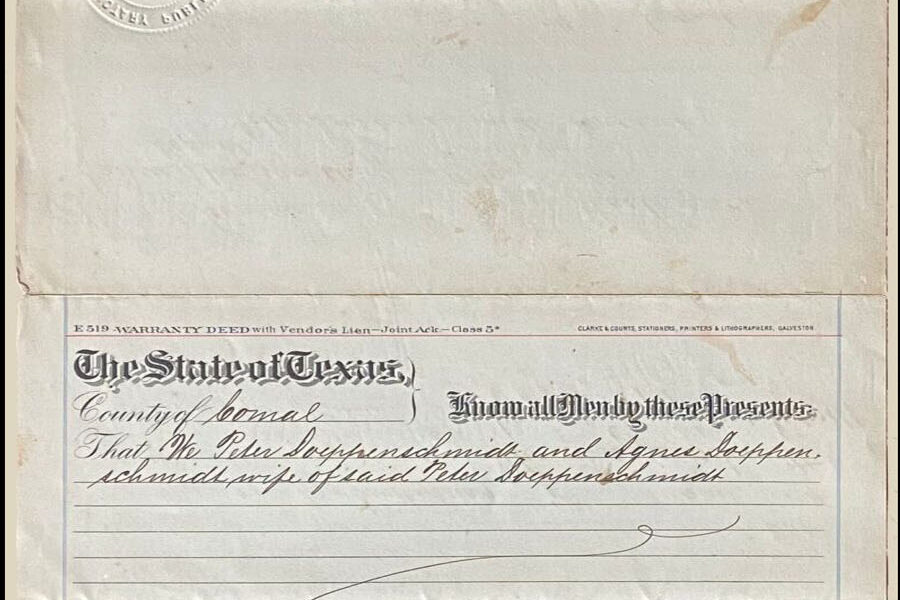 NOTARY PUBLI
E 519 WARRANTY DEED with Vendor's Lien—Joint Ack.—Class 5* CLARKE & COURTS, STATIONERS, PRINTERS & LITHOGRAPHERS, GALVESTON
The State of Texas,
County of Comal Know all Men by these Presents:
That We Peter Doeppenschmidt and Agnes Doeppen-
schmidt wife of said Peter Doeppenschmidt